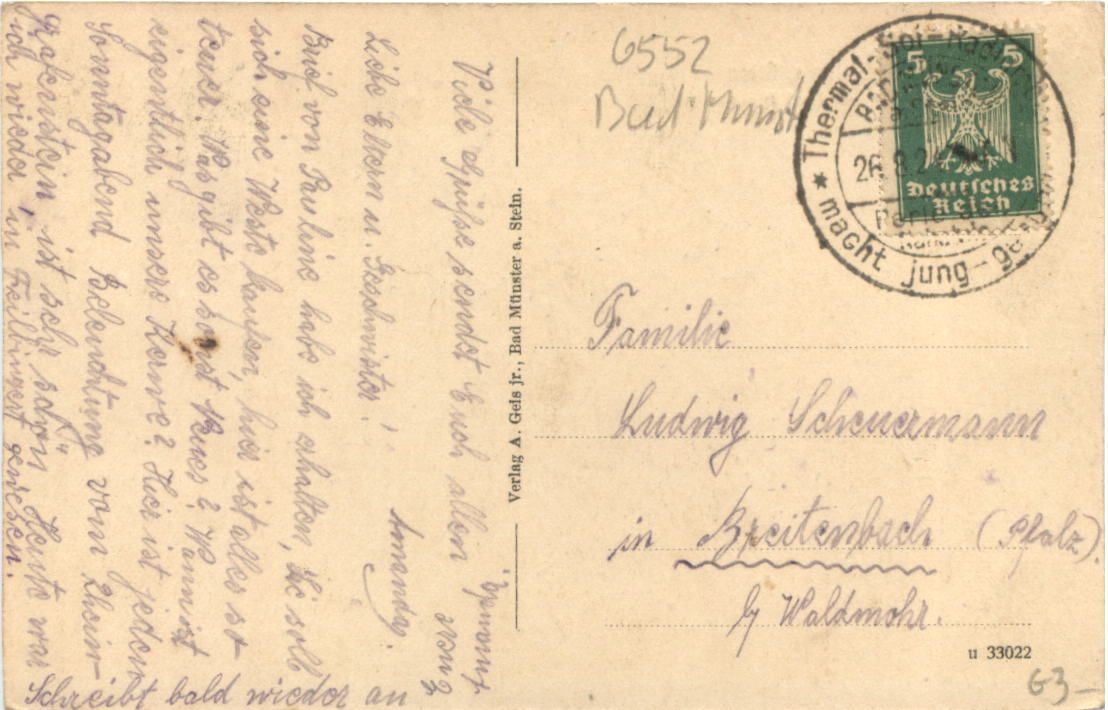 Liebe Eltern u. Geschwister!
Brief von Pauline habe ich erhalten, Sie soll
sich eine Weste kaufen, hier ist alles so
teuer. Was gibt es sonst Neues? Wann ist
eigentlich unsere Kerwe? Hier ist jeden
Sonntagabend Beleuchtung vom Rhein-
grafenstein, ist sehr schön. Heute war
ich wieder in Feilbingert gewesen.
Viele Grüße sendet Euch allen
Eure
Amanda.
Schreibt bald wieder an
Verlag A. Geis jr., Bad Münster a. Stein.
6552
Bad Münst
Thermal-Sol-Radium
macht jung-ge
26.8.2
Perle des
Nahetals
5 5
Deutsches
Reich
Familie
Ludwig Scheuermann
in Breitenbach (Pfalz).
b/ Waldmohr.
u 33022
G3-